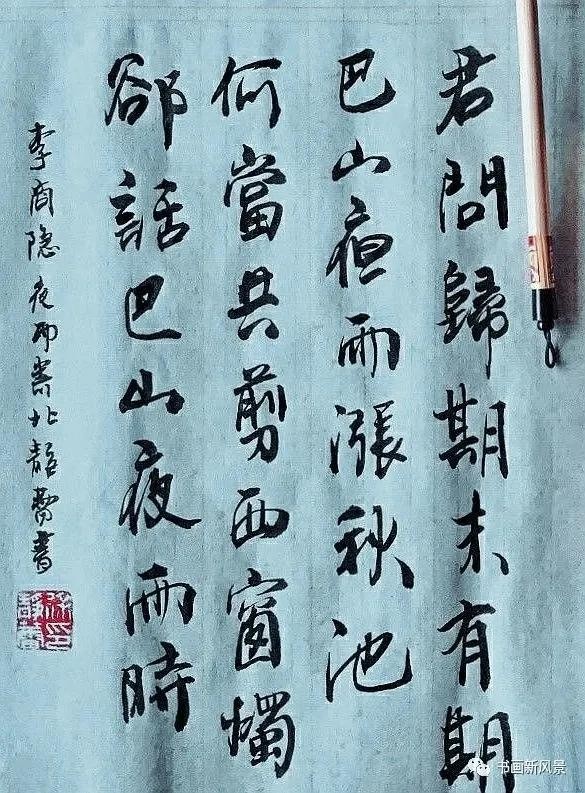 君問歸期未有期
巴山夜雨漲秋池
何當共剪西窗燭
卻話巴山夜雨時
李商隐夜雨寄北 書
书画新风景